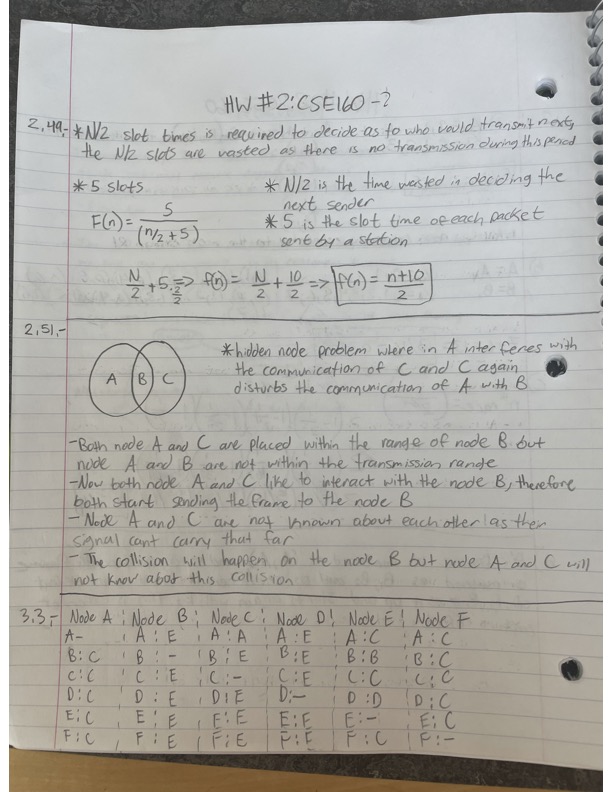 HW #2: CSE160 - 2
2.49.- * N/2 slot times is required to decide as to who would transmit next,
the N/2 slots are wasted as there is no transmission during this period
* 5 slots
F(n) = 5 / (n/2 + 5)
* N/2 is the time wasted in deciding the
next sender
* 5 is the slot time of each packet
sent by a station
N/2 + 5 · 2/2 => f(n) = N/2 + 10/2 => f(n) = n+10 / 2
2.51.-
A B C
* hidden node problem where in A interferes with
the communication of C and C again
disturbs the communication of A with B
- Both node A and C are placed within the range of node B but
node A and B are not within the transmission range
- Now both node A and C like to interact with the node B, therefore
both start sending the frame to the node B
- Node A and C are not known about each other as their
signal cant carry that far
- The collision will happen on the node B but node A and C will
not know about this collision
3.3.- Node A | Node B | Node C | Node D | Node E | Node F
A- | A : E | A : A | A : E | A : C | A : C
B : C | B : - | B : E | B : E | B : B | B : C
C : C | C : E | C : - | C : E | C : C | C : C
D : C | D : E | D : E | D : - | D : D | D : C
E : C | E : E | E : E | E : E | E : - | E : C
F : C | F : E | F : E | F : E | F : C | F : -